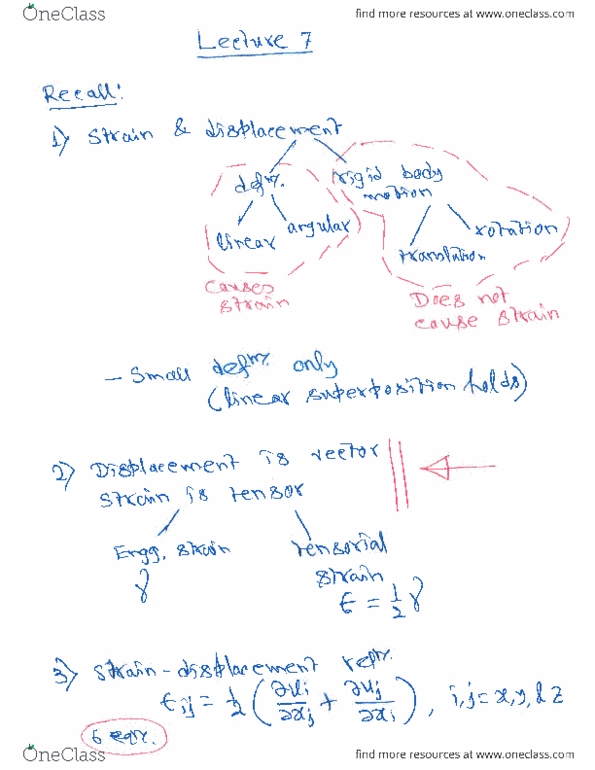 OneClass
find more resources at www.oneclass.com
Lecture 7
Recall:
1) Strain & displacement
defm.
rigid body
motion
linear
angular
translation
rotation
Causes
strain
Does not
cause strain
- Small defm. only
(linear superposition holds)
2) Displacement is vector
strain is tensor
Engg. strain
γ
tensorial
strain
ϵ = 1/2 γ
3) Strain-displacement reln.
ϵij = 1/2 (∂ui/∂xj + ∂uj/∂xi), i,j = x, y, & z
6 eqn.
OneClass
find more resources at www.oneclass.com